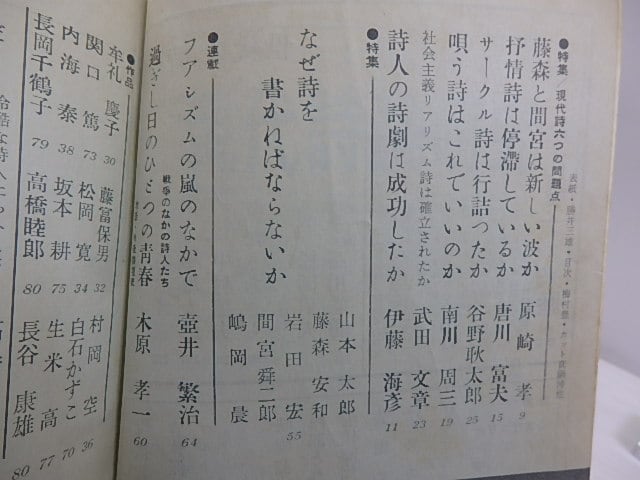 表紙・勝井三雄・目次・
●特集／現代詩六つの問題点
藤森と間宮は新しい波か 原崎 孝 9
抒情詩は停滞しているか 唐川 富夫 15
サークル詩は行詰ったか 谷野耿太郎 25
唄う詩はこれでいいのか 南川 周三 19
社会主義リアリズム詩は確立されたか 武田 文章 23
詩人の詩劇は成功したか 伊藤 海彦 11
●特集
なぜ詩を
書かねばならないか
山本 太郎
藤森 安和
岩田 宏 55
間宮 舜二郎
嶋岡 晨
●連載
ファシズムの嵐のなかで 壺井 繁治 64
戦争のなかの詩人たち
過ぎし日のひとつの青春 木原 孝一 60
●作品
牟礼 慶子 30 藤富保男 32 村岡 空 36
関口 篤 73 松岡 寛 34 白石かずこ 70
内海 泰 38 坂本 耕 75 生米 高 77
長岡千鶴子 79 高橋睦郎 80 長谷 康雄 80